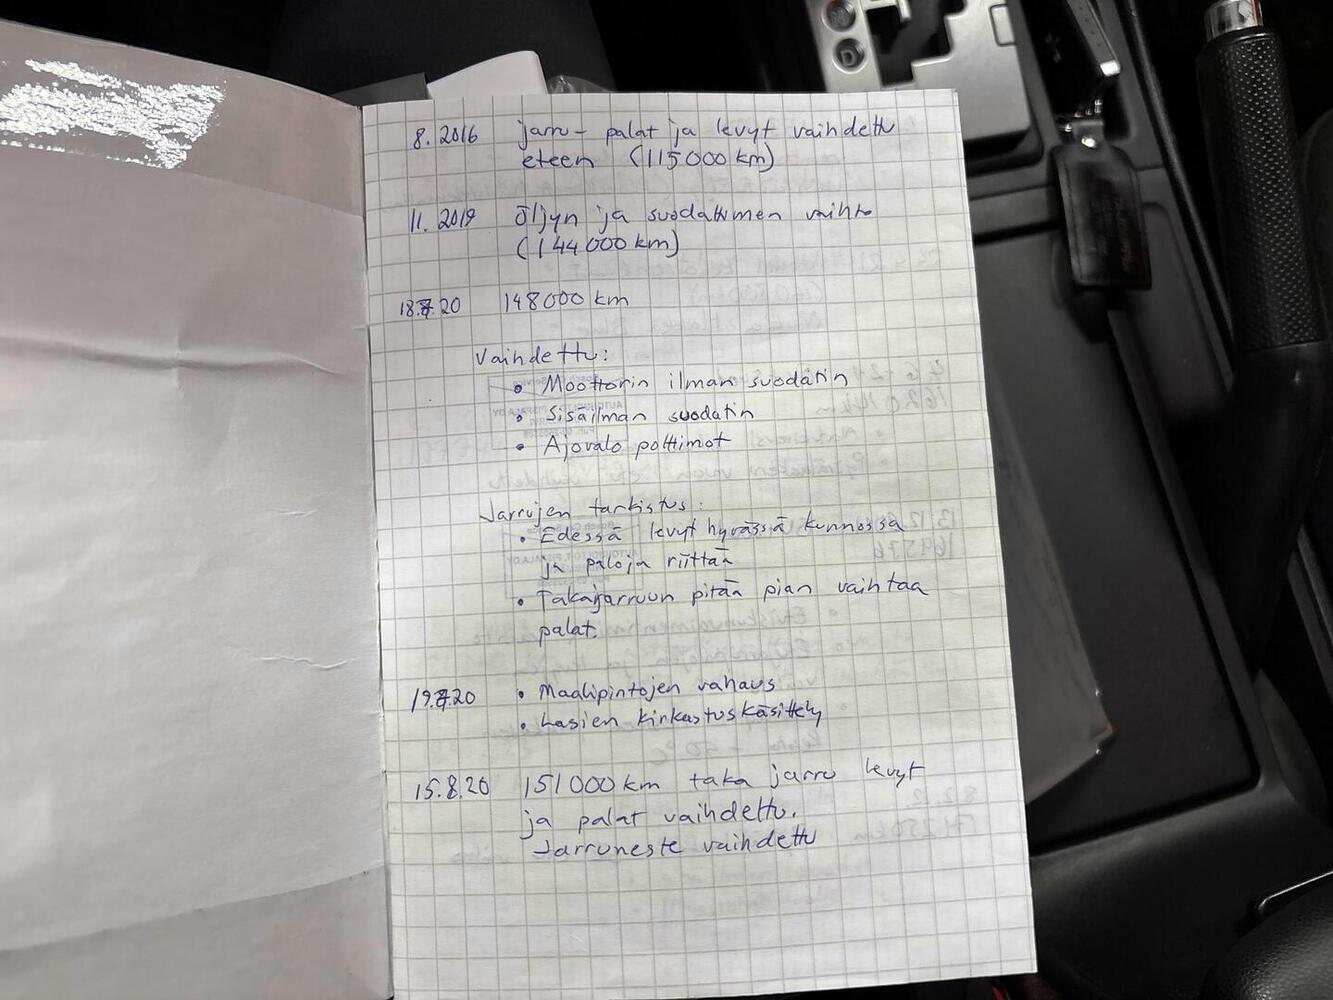 8.2016 jarru- palat ja levyt vaihdettu
eteen (115000 km)
11.2019 öljyn ja suodattimen vaihto
(144000 km)
18.7.20 148000 km
Vaihdettu:
• Moottorin ilman suodatin
• Sisäilman suodatin
• Ajovalo polttimot
Jarrujen tarkistus:
• Edessä levyt hyvässä kunnossa
ja paloja riittää
• Takajarruun pitää pian vaihtaa
palat.
19.7.20 • Maalipintojen vahaus
• Lasien kirkastuskäsittely
15.8.20 151000 km taka jarru levyt
ja palat vaihdettu.
Jarruneste vaihdettu
D